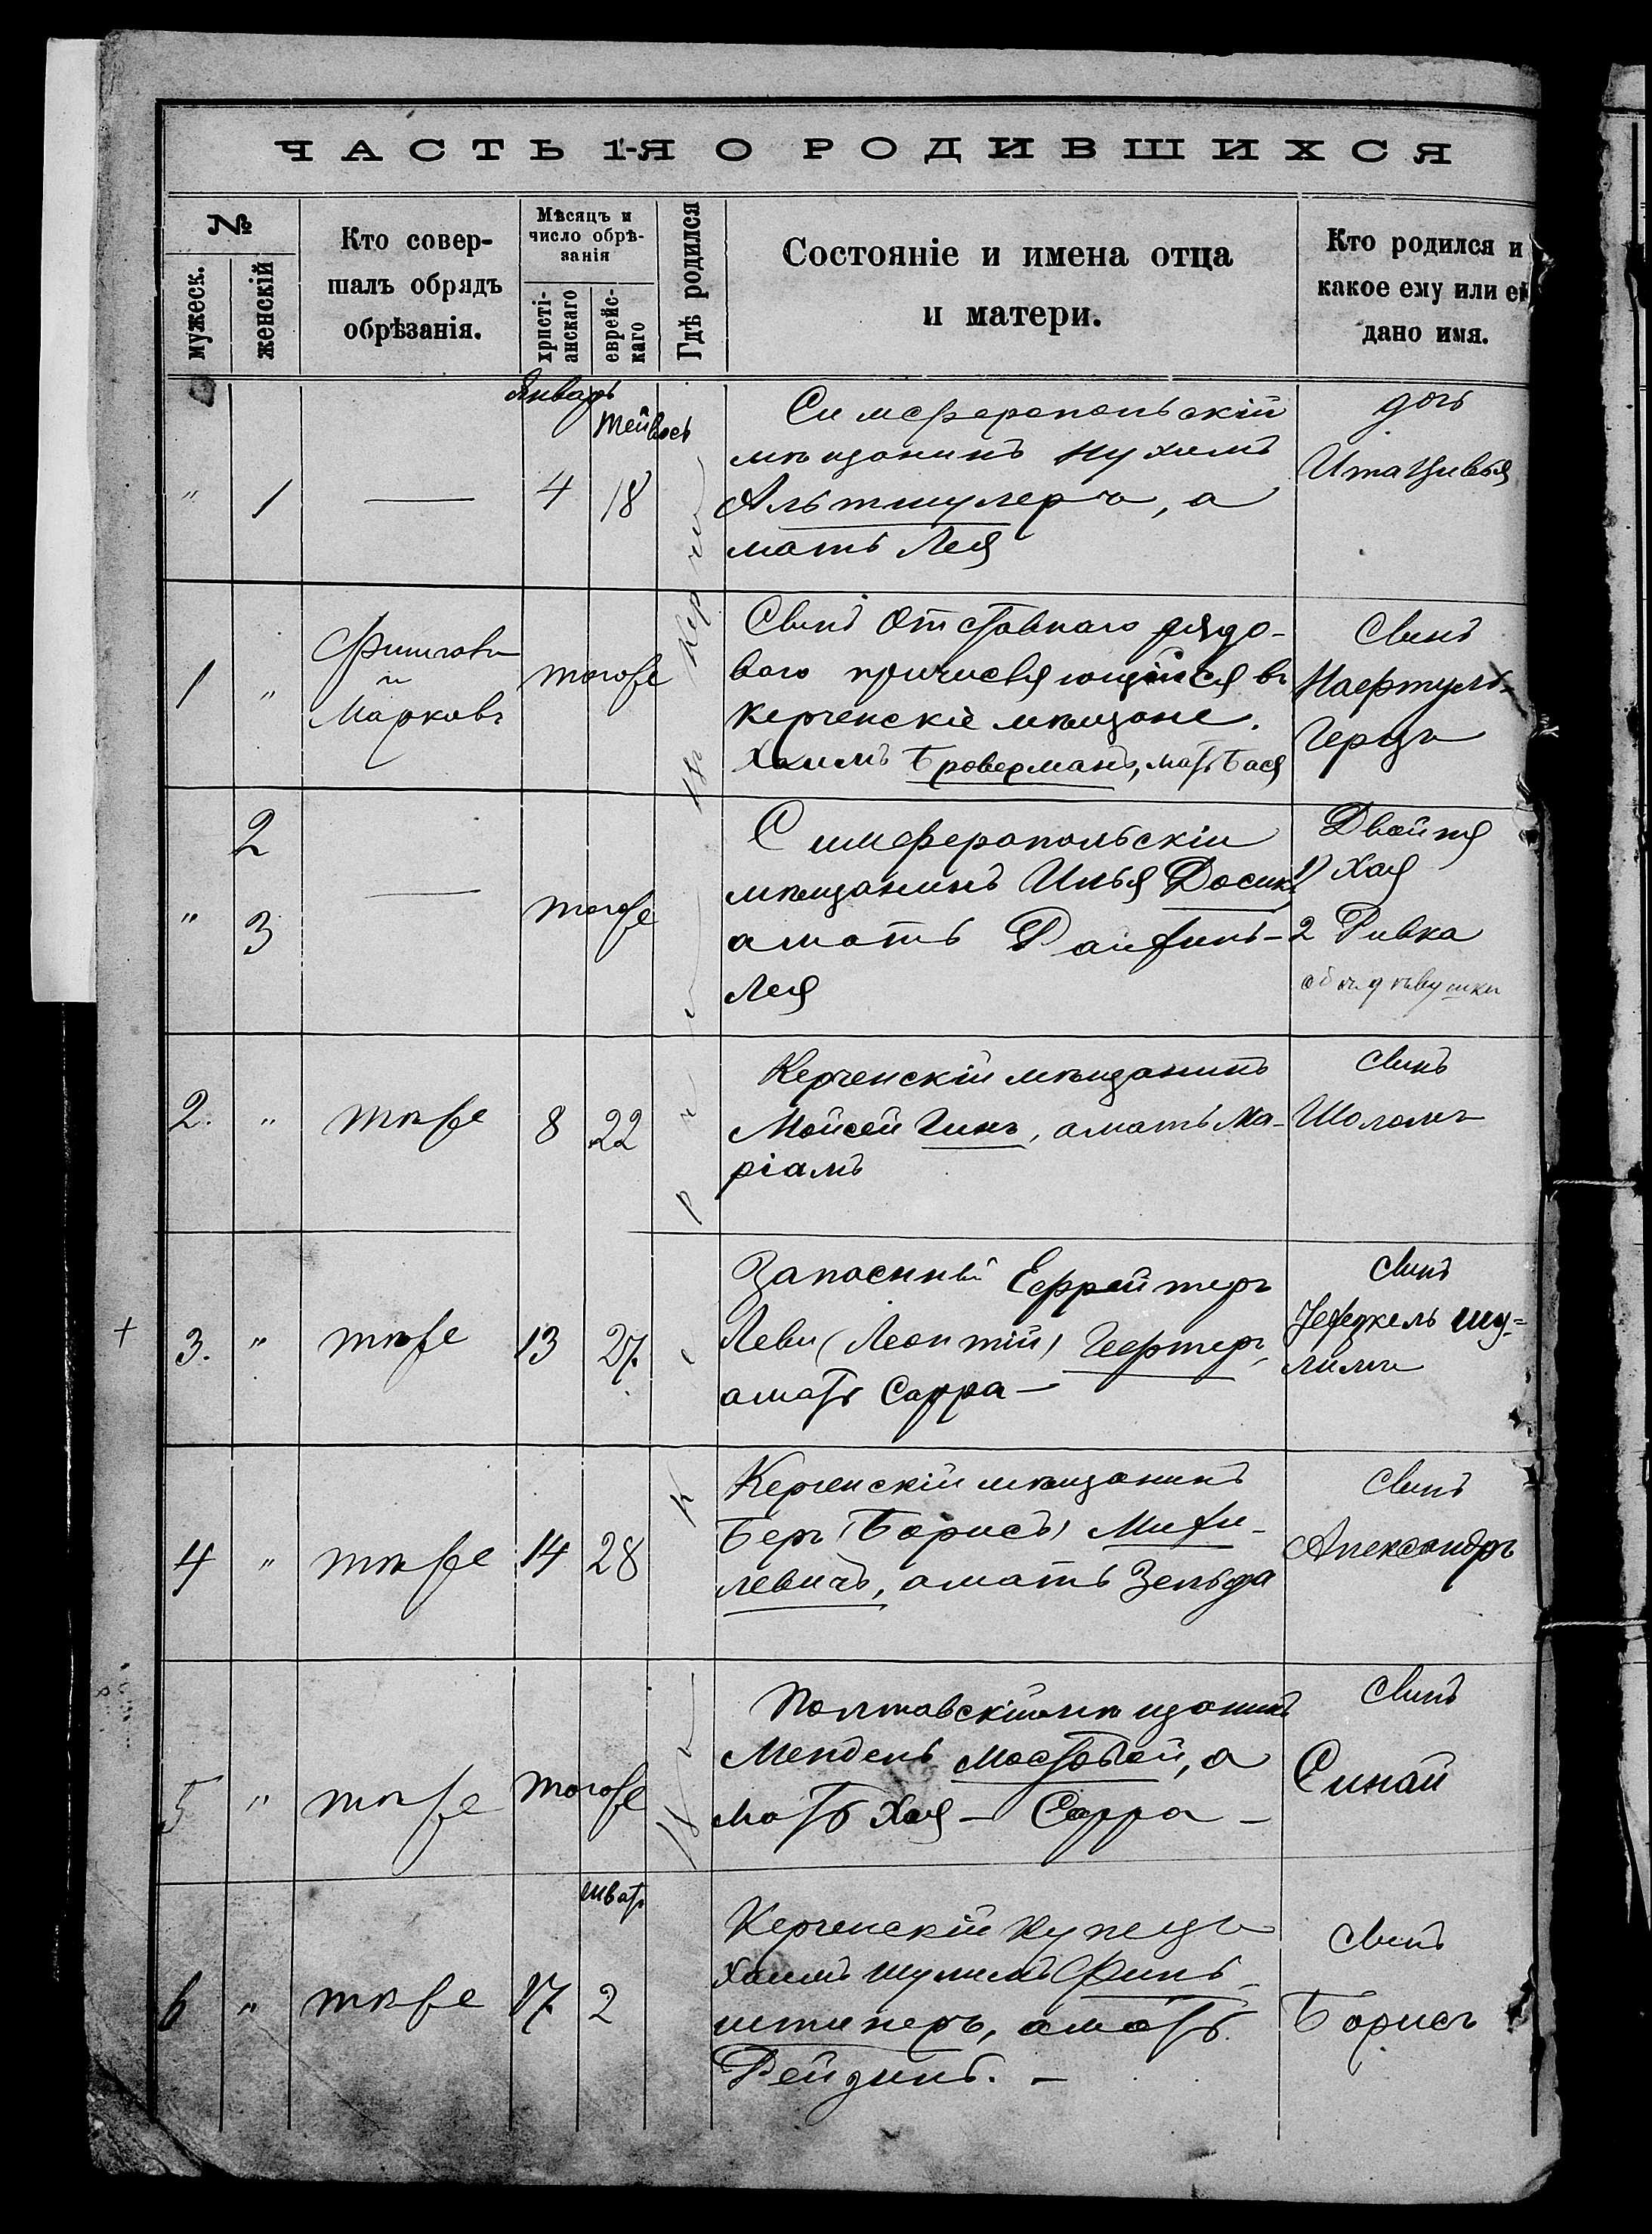 ЧАСТЬ 1-Я О РОДИВШИХСЯ
№
мужеск.
женскій
Кто совер-
шалъ обрядъ
обрѣзанія.
Мѣсяцъ и
число обрѣ-
занія
христі-
анскаго
еврейс-
каго
Гдѣ родился
Состояніе и имена отца
и матери.
Кто родился и
какое ему или ей
дано имя.
Январь
Тейвось
" 1 — 4 18
Симферопольскій
мѣщанинъ Нухимъ
Альтшулеръ, а
мать Лея
дочь
Ита Цивья
въ Керчи
1 "
и
Марковъ
тогоже
Сынъ Отставного рядо-
вого причисляющійся въ
Керченскіе мѣщане.
Хаимъ Броверманъ, мать Бася
Сынъ
Нафтулъ-
Герцъ
2
" 3 — тогоже
Симферопольскій
мѣщанинъ Илья Досик
а мать
Лея
Двойня
1) Хая
2 Ривка
обѣ дѣвушки
2. " тѣже 8 22
Керченскій мѣщанинъ
Мойсей Гинъ, а мать Ма-
ріамъ
сынъ
Шоломъ
въ Керчи
+ 3. " тѣже 13 27.
Запасный Ефрейтеръ
Леви (Леонтій) Гефтеръ,
а мать Сарра —
сынъ
Шу-
лимъ
4 " тѣже 14 28
Керченскій мѣщанинъ
Беръ (Борисъ) Михе-
левичъ, а мать Зельда
сынъ
Александръ
5 " тѣже тогоже
Полтавскій мѣщанинъ
Мендель Мостовой, а
мать Хая — Сарра —
сынъ
Синай
Шватъ
6 " тѣже 17 2
Керченскій Купецъ
Хаимъ Шулимъ Финк-
штейнъ, а мать
Рейзинъ. —
сынъ
Борисъ